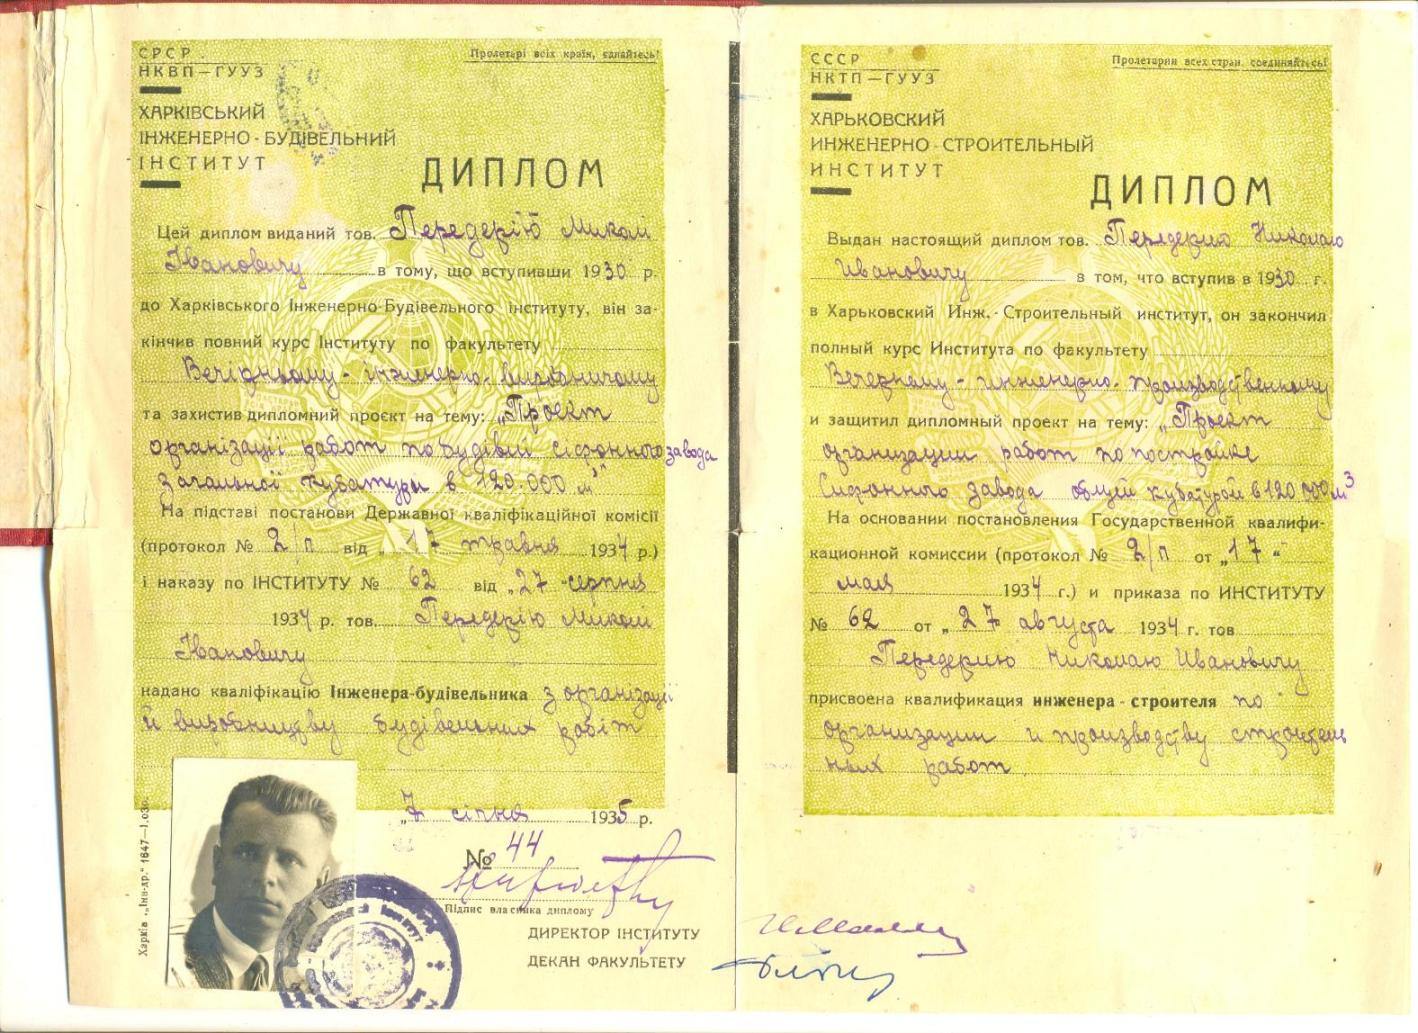 СРСР.
НКВП—ГУУЗ
Пролетарі всіх країн, єднайтесь!
ХАРКІВСЬКИЙ
ІНЖЕНЕРНО-БУДІВЕЛЬНИЙ
ІНСТИТУТ
ДИПЛОМ
Цей диплом виданий тов. Передерію Миколі
Івановичу в тому, що вступивши 1930 р.
до Харківського Інженерно-Будівельного інституту, він за-
кінчив повний курс Інституту по факультету
Вечірньому-інженерно-виробничому
та захистив дипломний проєкт на тему: „Проєкт
організації работ по будівлі сіфонного завода
загальної кубатури в 120.000 м³"
На підставі постанови Державної кваліфікаційної комісії
(протокол № 2/п від „17 травня 1934 р.)
і наказу по ІНСТИТУТУ № 62 від „27 серпня
1934 р. тов. Передерію Миколі
Івановичу
надано кваліфікацію Інженера-будівельника з організації
й виробництву будівельних робіт
„7 січня 1935 р.
№ 44
Підпис власника диплому
ДИРЕКТОР ІНСТИТУТУ
ДЕКАН ФАКУЛЬТЕТУ
Харків „Інн-др." 1647—1.030.
СССР
НКТП—ГУУЗ
Пролетарии всех стран, соединяйтесь!
ХАРЬКОВСКИЙ
ИНЖЕНЕРНО-СТРОИТЕЛЬНЫЙ
ИНСТИТУТ
ДИПЛОМ
Выдан настоящий диплом тов. Передерию Николаю
Ивановичу в том, что вступив в 1930 г.
в Харьковский Инж.-Строительный институт, он закончил
полный курс Института по факультету
Вечернему-инженерно-производственному
и защитил дипломный проект на тему: „Проект
организации работ по постройке
Сифонного завода общей кубатурой в 120.000 м³
На основании постановления Государственной квалифи-
кационной комиссии (протокол № 2/п от „17"
мая 1934 г.) и приказа по ИНСТИТУТУ
№ 62 от „27 августа 1934 г. тов
Передерию Николаю Ивановичу
присвоена квалификация инженера-строителя по
организации и производству строитель
ных работ